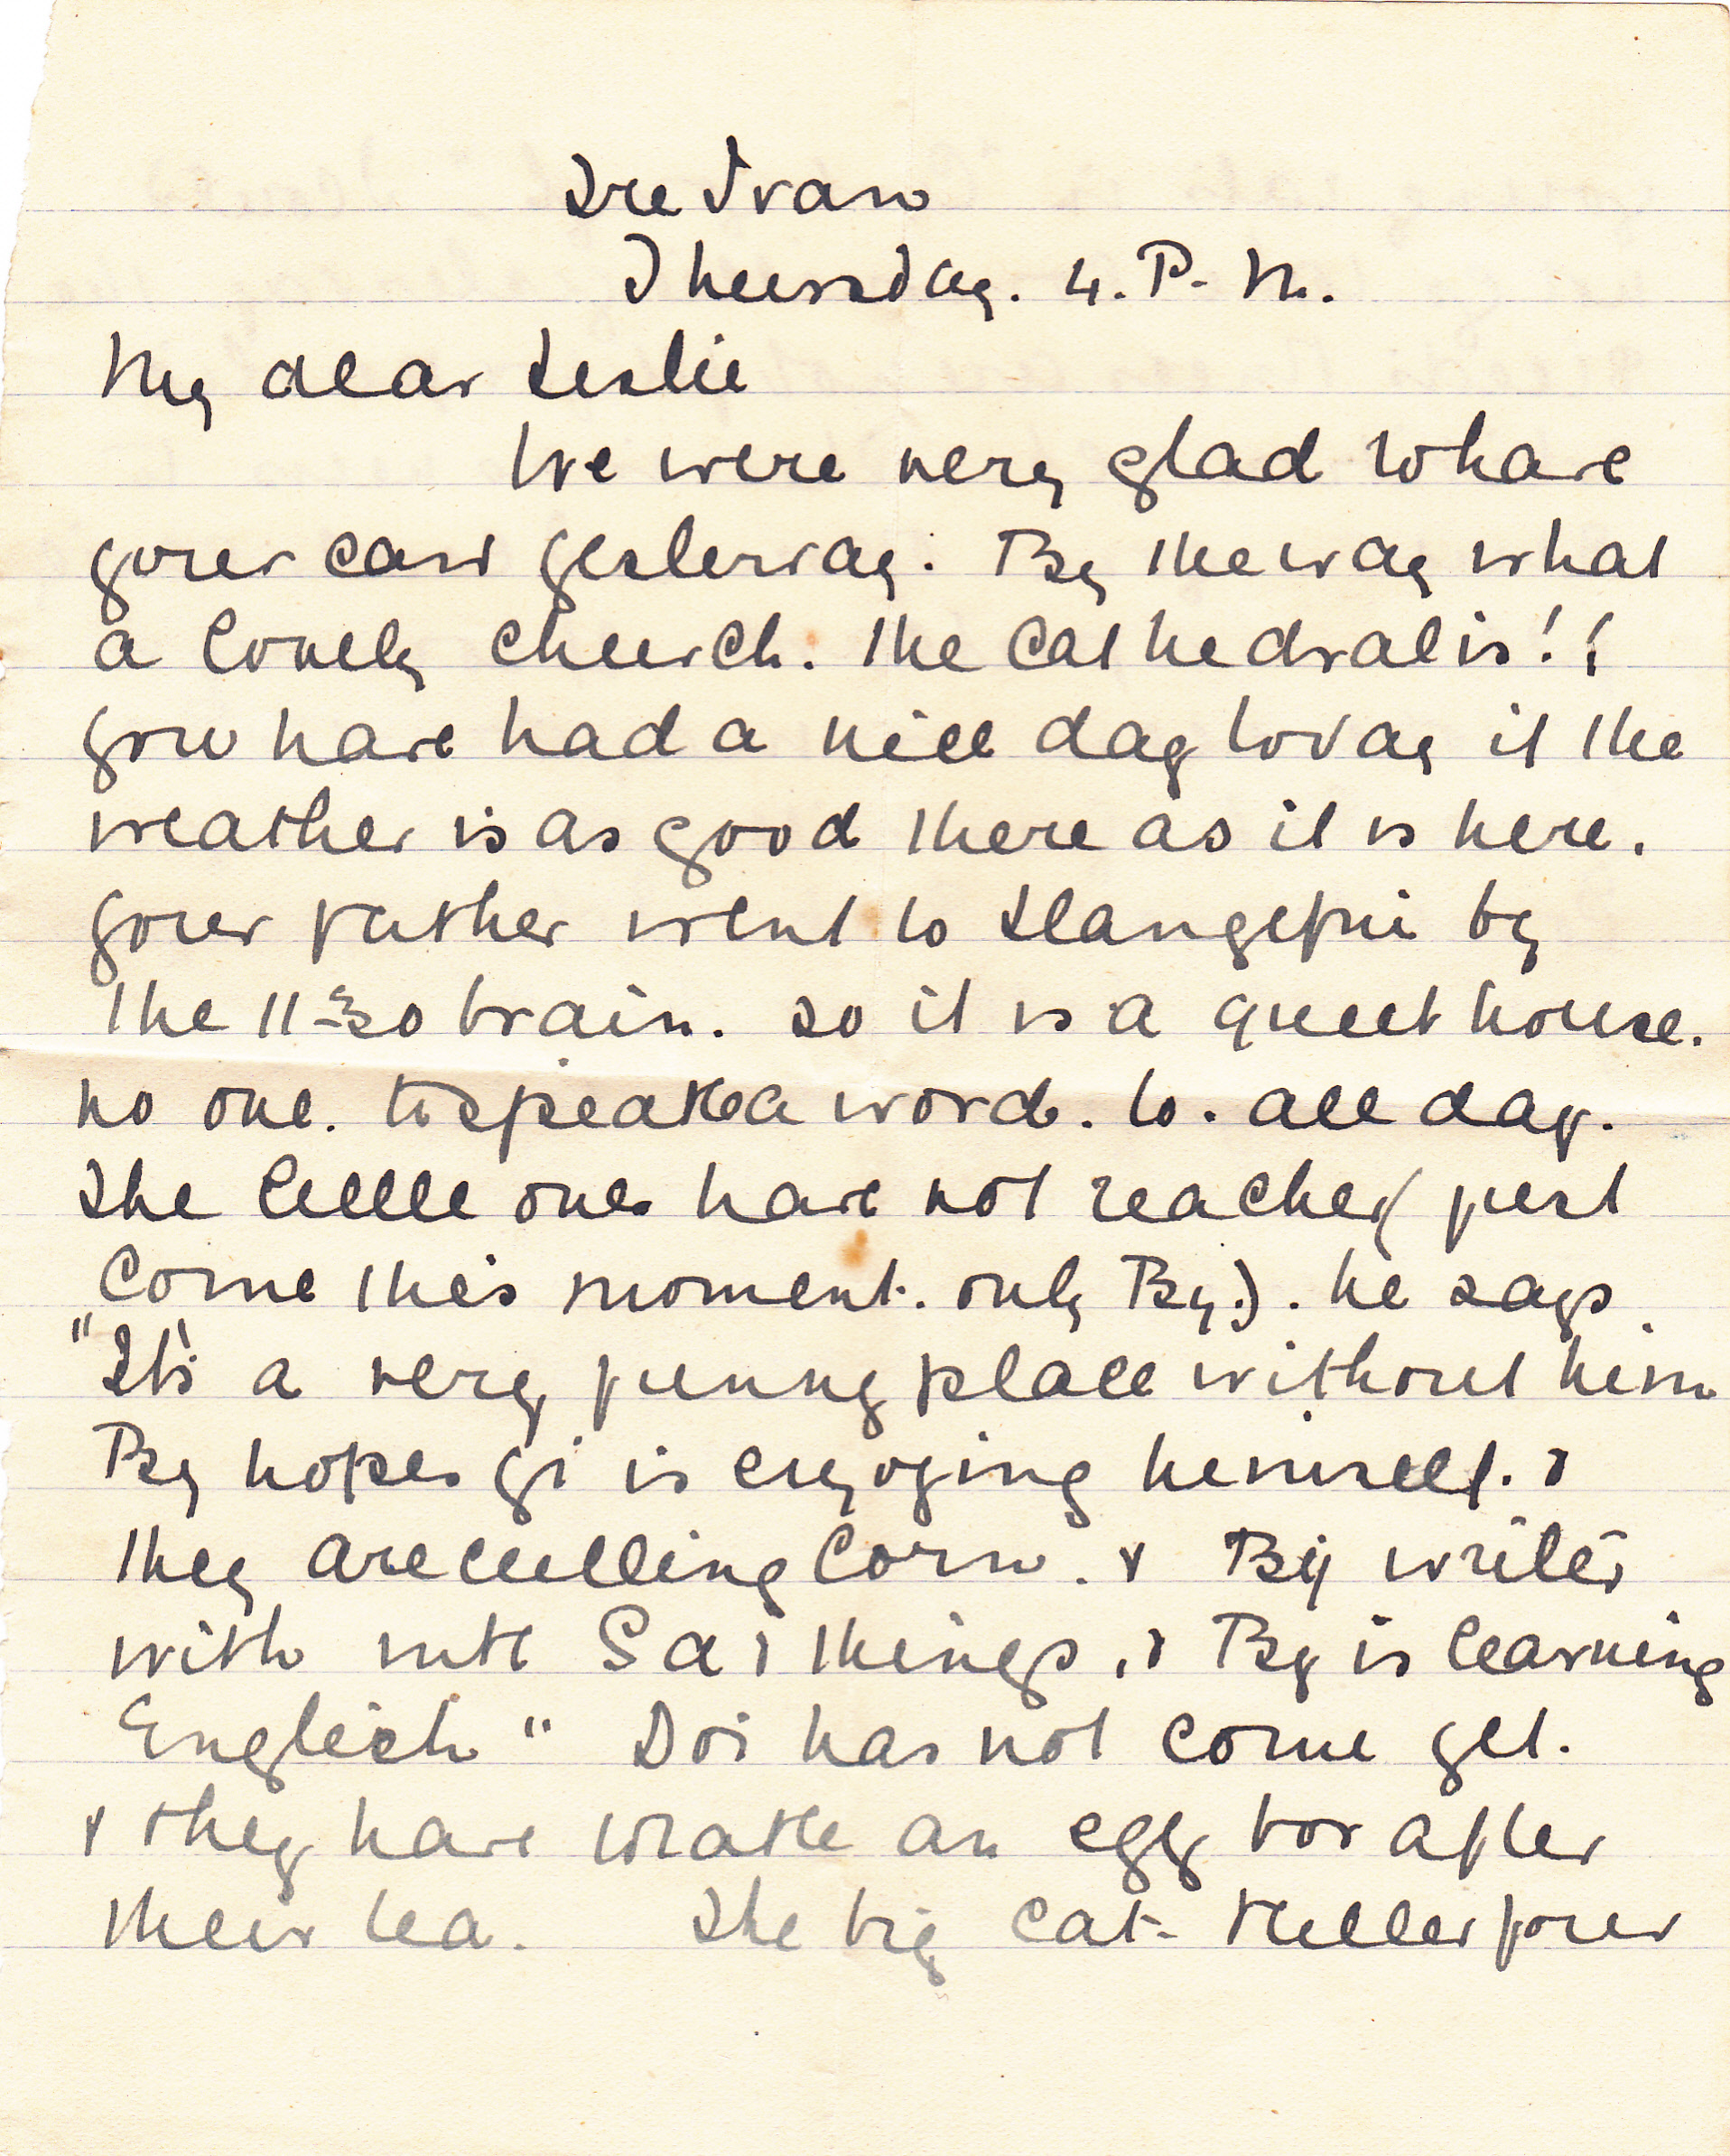 Tre Ivan
Thursday. 4. P. M.
My dear Leslie
We were very glad to have
your card yesterday. By the way what
a lovely church. the Cathedral is!!
you have had a nice day today if the
weather is as good there as it is here.
your father went to Llangefni by
the 11-30 train. so it is a quiet house.
no one. to speak a word. to. all day.
The little ones have not reached (just
come this moment. only By.). he says
"It's a very funny place without him
By hopes is enjoying himself. &
they are cutting Corn. & By writes
with things, & By is learning
English" Doi has not come yet.
& they have to take an egg for after
their tea. The big cat killed four